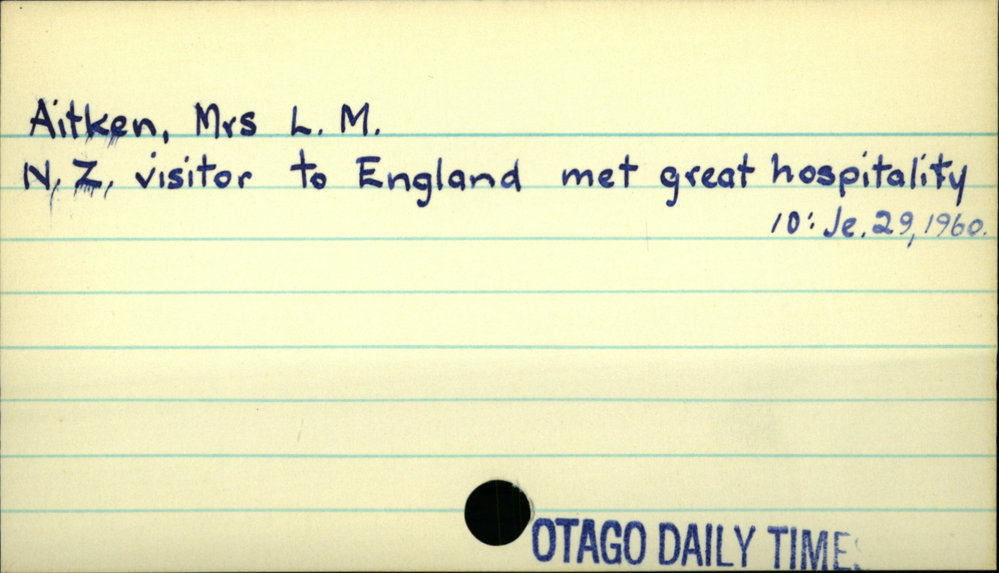 Aitken, Mrs L. M.
N, Z, visitor to England met great hospitality
10: Je. 29, 1960.
OTAGO DAILY TIMES